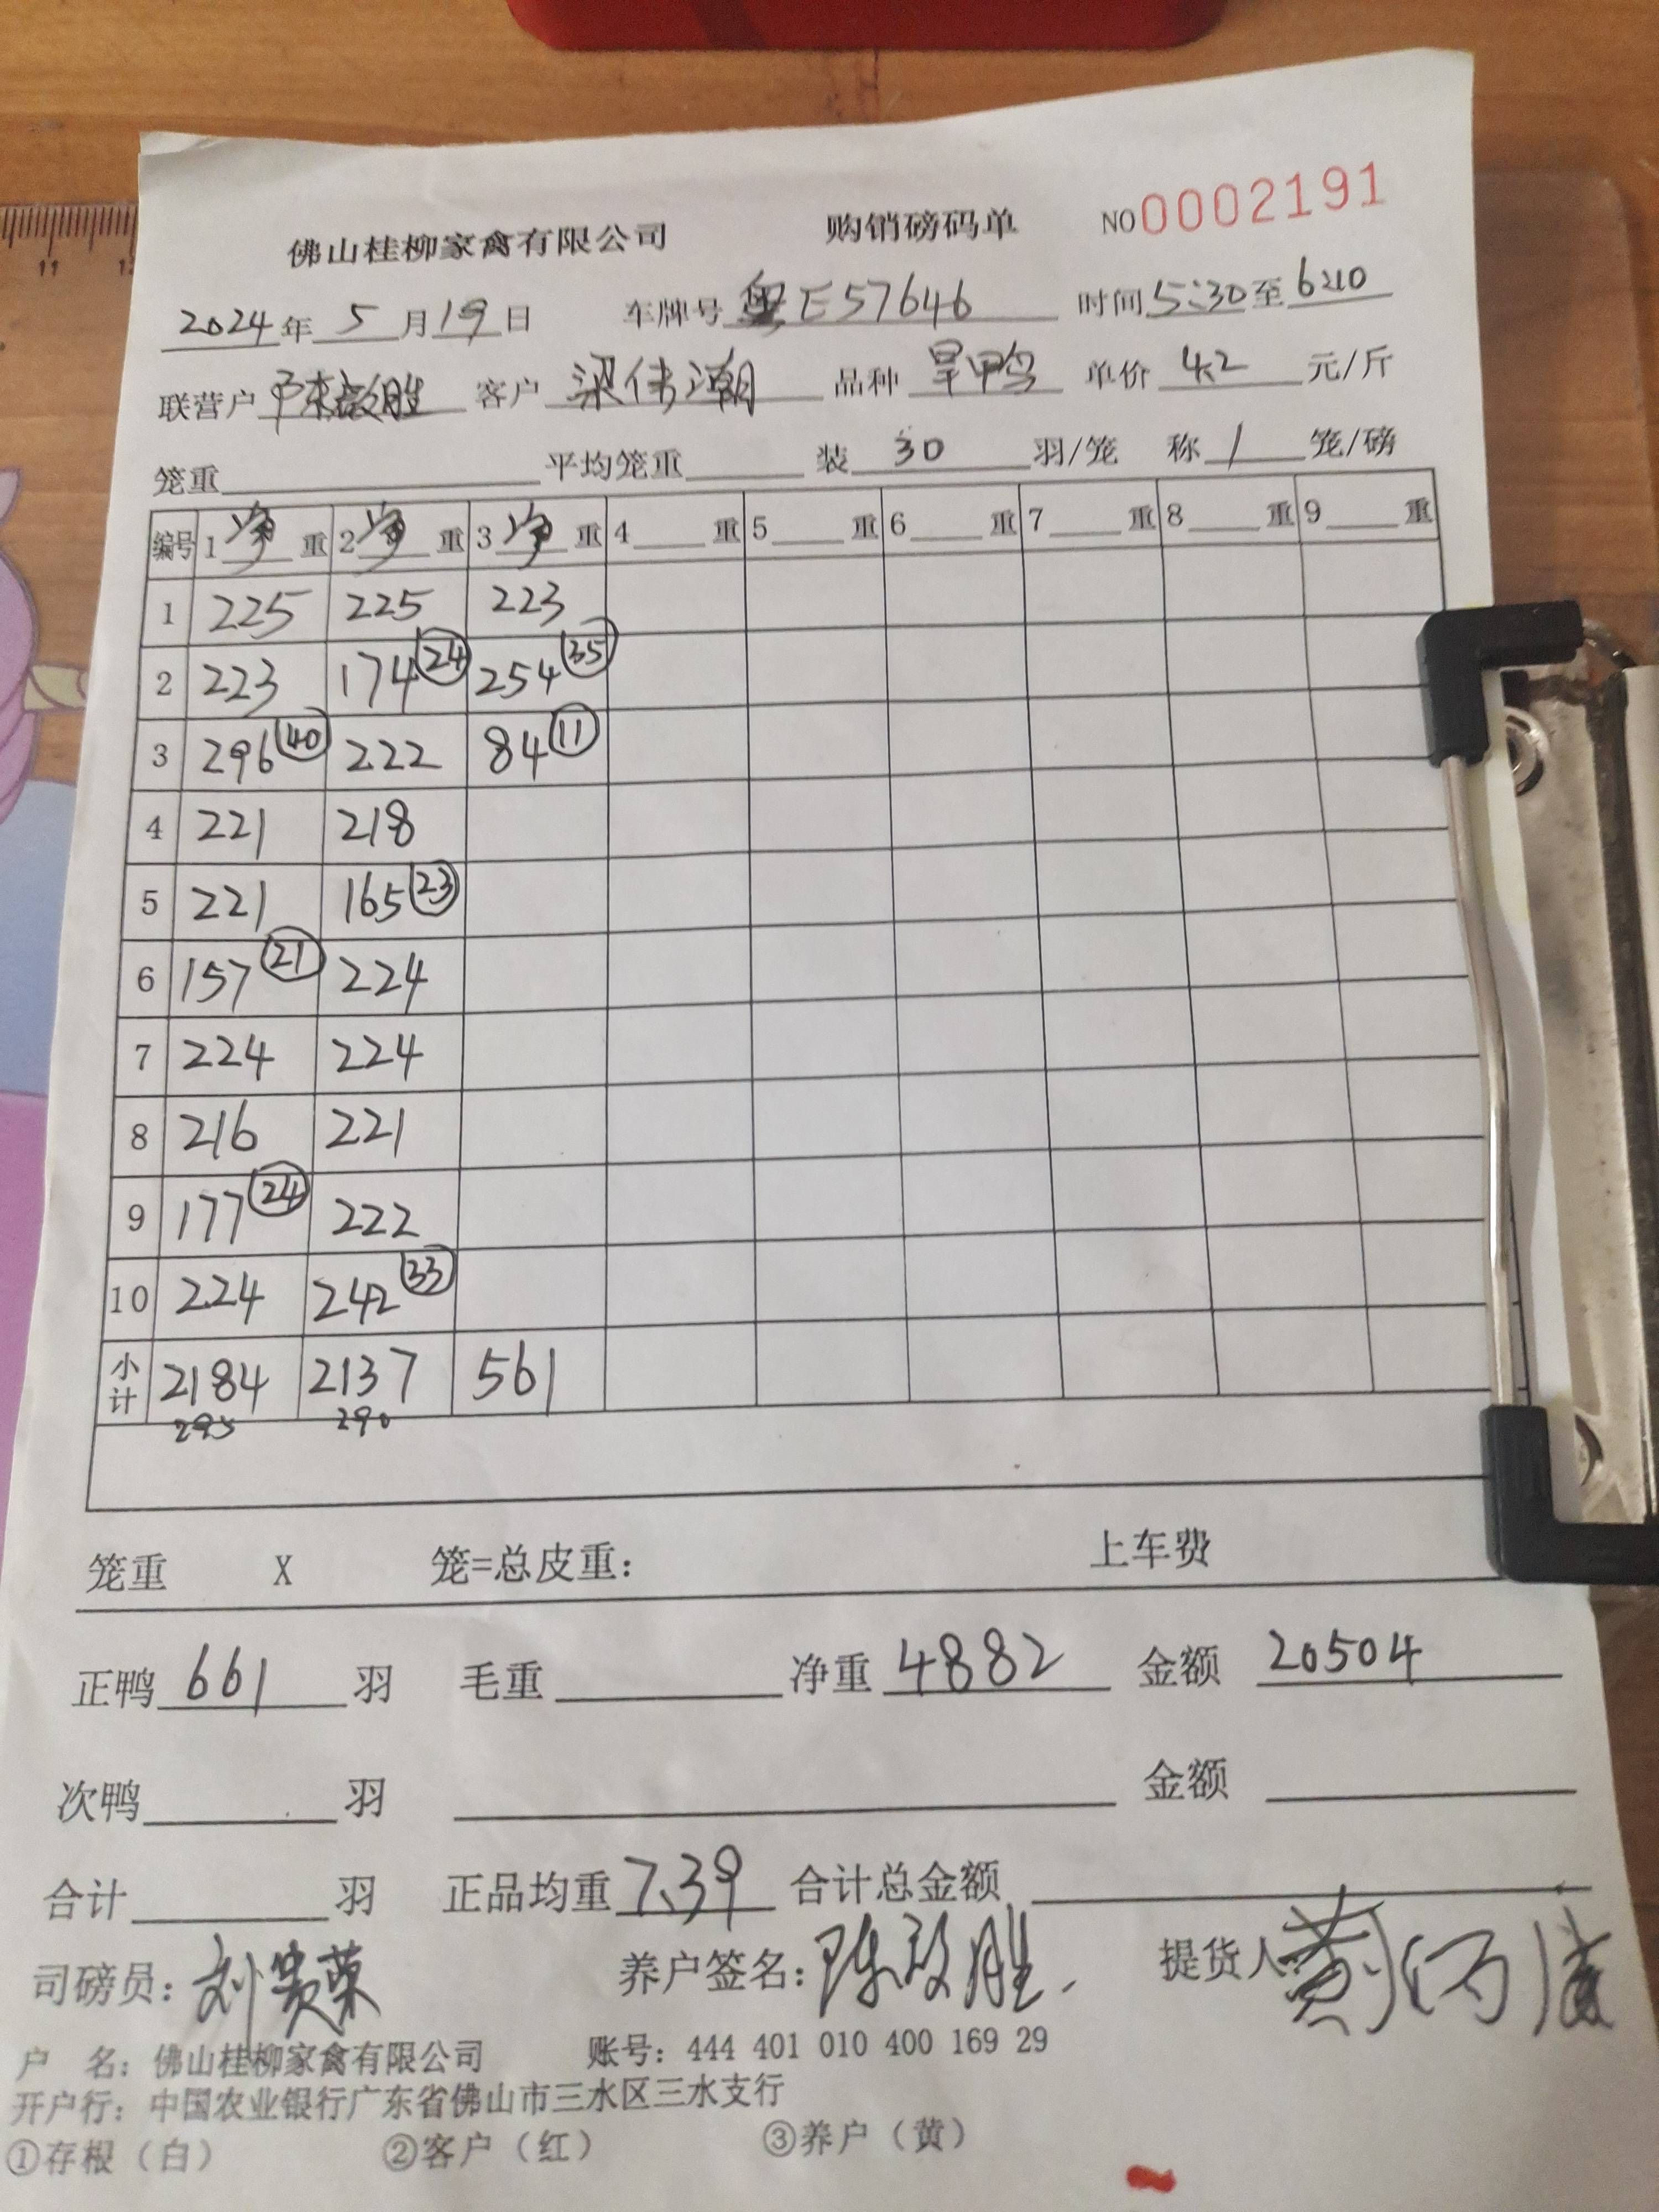 11
佛山桂柳家禽有限公司 购销磅码单 NO 0002191
2024年 5 月 19 日 车牌号 粤E57646 时间 5:30 至 6:10
联营户 陈敌胜 客户 梁伟潮 品种 旱鸭 单价 4.2 元/斤
笼重 平均笼重 装 30 羽/笼 称 1 笼/磅
编号 1 净 重 2 净 重 3 净 重 4 重 5 重 6 重 7 重 8 重 9 重
1 225 225 223
2 223 174 24 254 35
3 296 40 222 84 11
4 221 218
5 221 165 23
6 157 21 224
7 224 224
8 216 221
9 177 24 222
10 224 242 33
小计 2184 2137 561
295 290
笼重 X 笼=总皮重: 上车费
正鸭 661 羽 毛重 净重 4882 金额 20504
次鸭 羽 金额
合计 羽 正品均重 7.39 合计总金额
司磅员: 刘贵荣 养户签名: 陈 胜 提货人: 黄
户 名: 佛山桂柳家禽有限公司 账号: 444 401 010 400 169 29
开户行: 中国农业银行广东省佛山市三水区三水支行
①存根（白） ②客户（红） ③养户（黄）